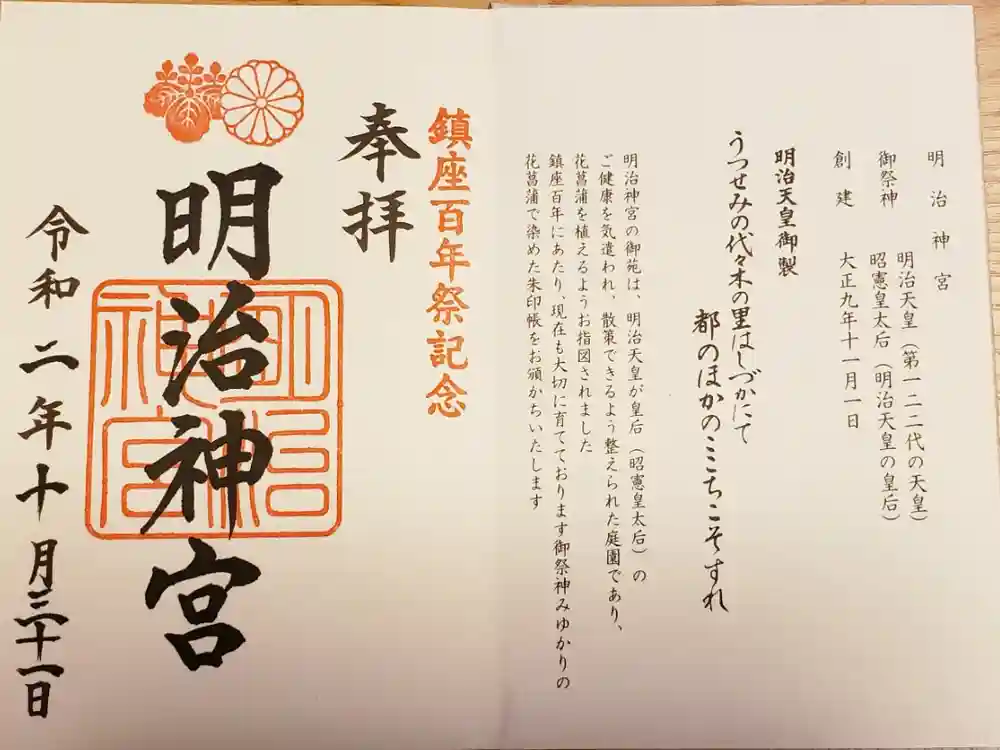 明治神宮
御祭神 明治天皇（第一二二代の天皇）
昭憲皇太后（明治天皇の皇后）
創建 大正九年十一月一日
明治天皇御製
うつせみの代々木の里はしづかにて
都のほかのここちこそすれ
明治神宮の御苑は、明治天皇が皇后（昭憲皇太后）の
ご健康を気遣われ、散策できるよう整えられた庭園であり、
花菖蒲を植えるようお指図されました
鎮座百年にあたり、現在も大切に育てております御祭神みゆかりの
花菖蒲で染めた朱印帳をお頒かちいたします
鎮座百年祭記念
奉拝
明治神宮
明治神宮
令和二年十月三十一日